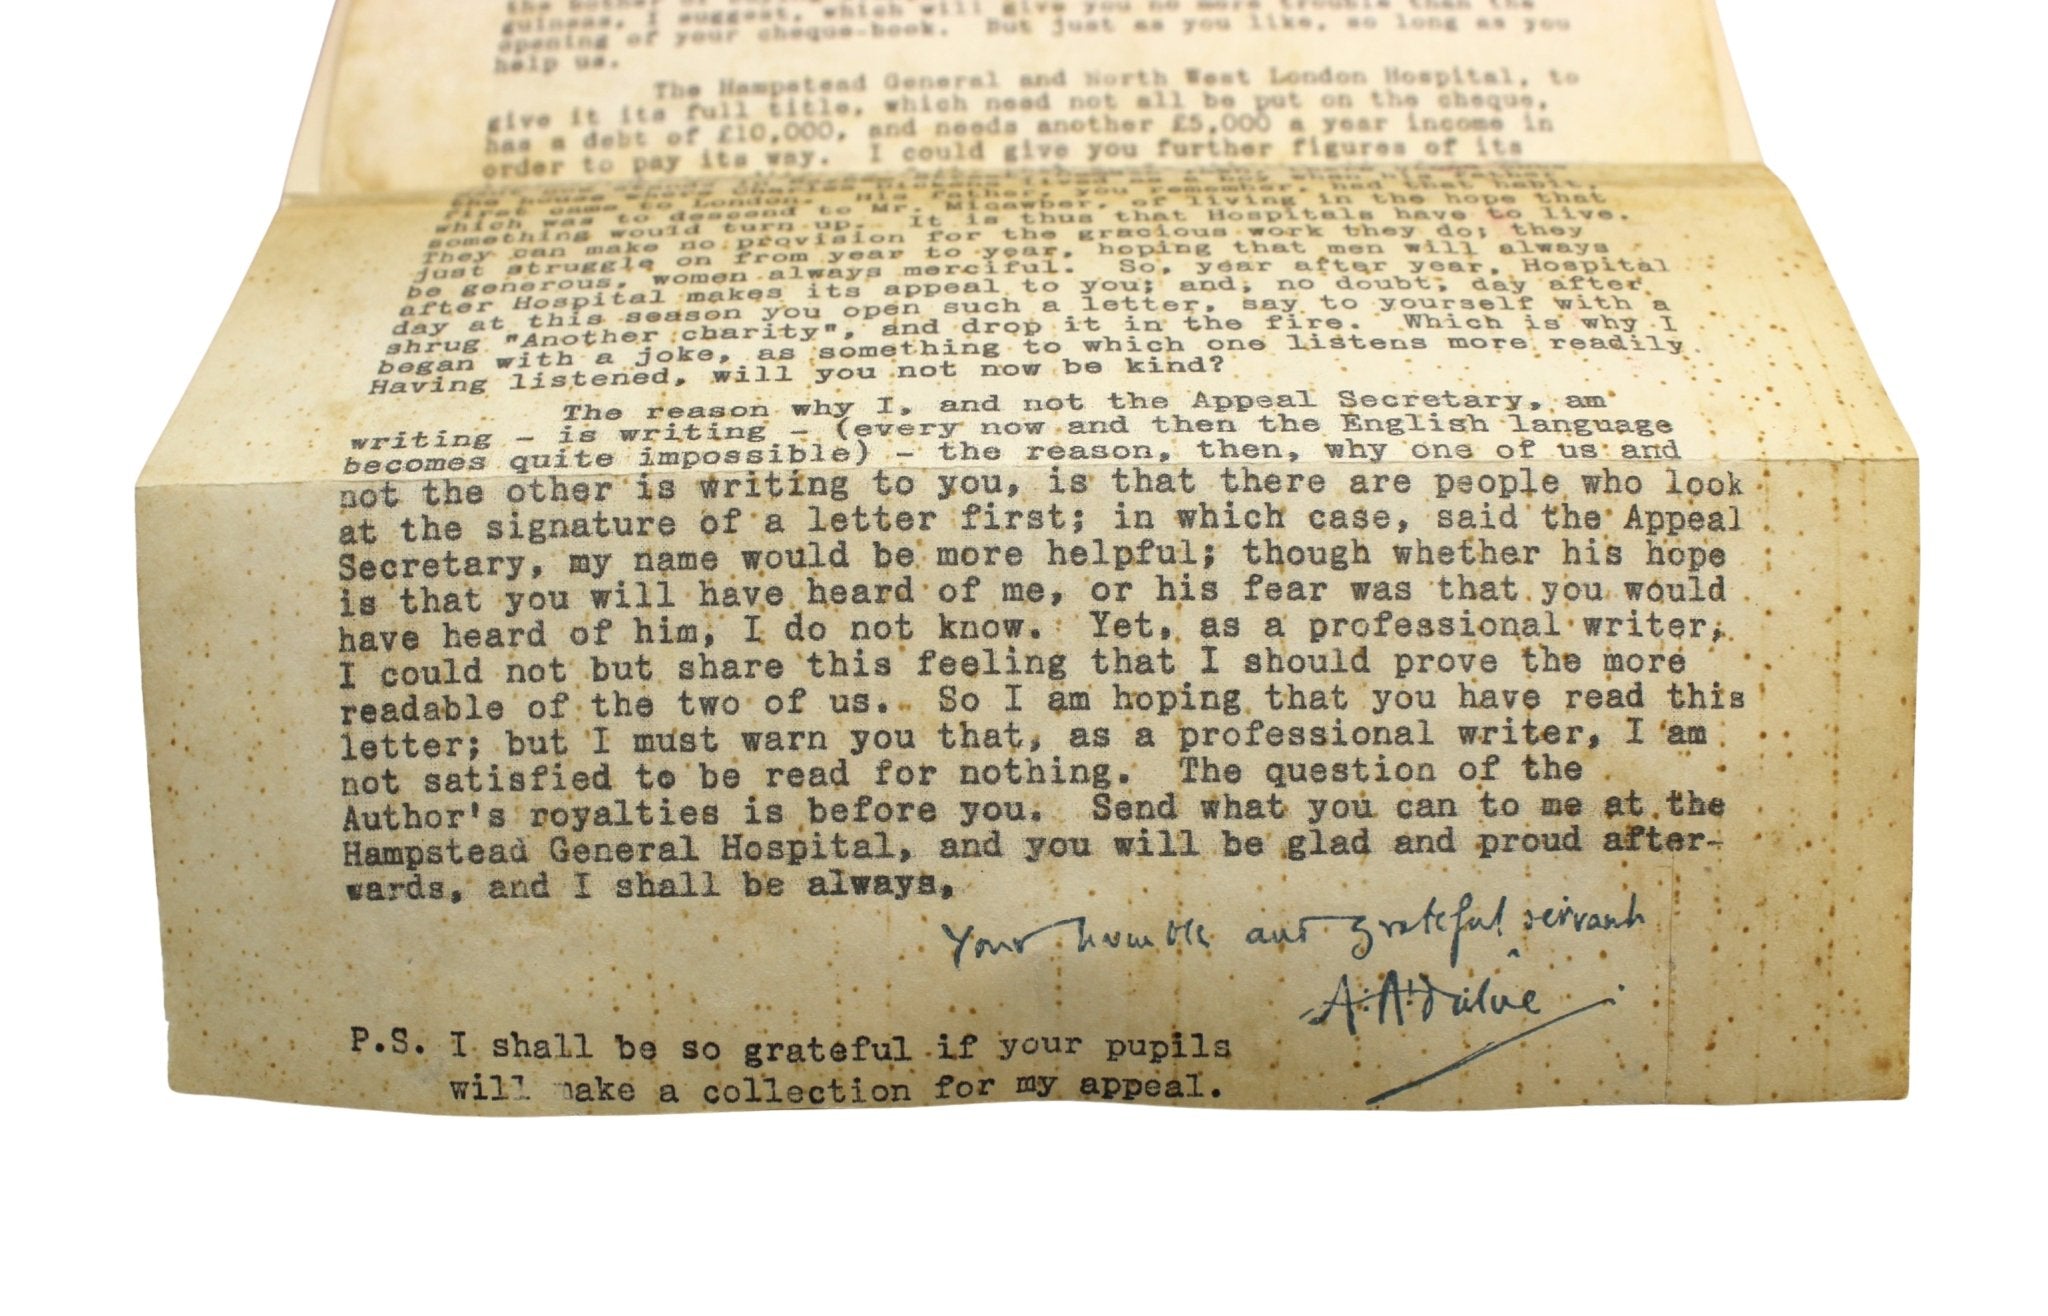 guineas, I suggest, which will give you no more trouble than the
opening of your cheque-book. But just as you like, so long as you
help us.
The Hampstead General and North West London Hospital, to
give it its full title, which need not all be put on the cheque,
has a debt of £10,000, and needs another £5,000 a year income in
order to pay its way. I could give you further figures of its
the house where Charles Dickens lived as a boy when his father
first came to London. His father, you remember, had that habit,
which was to descend to Mr. Micawber, of living in the hope that
something would turn up. It is thus that Hospitals have to live.
They can make no provision for the gracious work they do; they
just struggle on from year to year, hoping that men will always
be generous, women always merciful. So, year after year, Hospital
after Hospital makes its appeal to you; and, no doubt, day after
day at this season you open such a letter, say to yourself with a
shrug "Another charity", and drop it in the fire. Which is why I
began with a joke, as something to which one listens more readily.
Having listened, will you not now be kind?
The reason why I, and not the Appeal Secretary, am
writing - is writing - (every now and then the English language
becomes quite impossible) - the reason, then, why one of us and
not the other is writing to you, is that there are people who look
at the signature of a letter first; in which case, said the Appeal
Secretary, my name would be more helpful; though whether his hope
is that you will have heard of me, or his fear was that you would
have heard of him, I do not know. Yet, as a professional writer,
I could not but share this feeling that I should prove the more
readable of the two of us. So I am hoping that you have read this
letter; but I must warn you that, as a professional writer, I am
not satisfied to be read for nothing. The question of the
Author's royalties is before you. Send what you can to me at the
Hampstead General Hospital, and you will be glad and proud after-
wards, and I shall be always,
Your humble and grateful servant
A. A. Milne
P.S. I shall be so grateful if your pupils
will make a collection for my appeal.